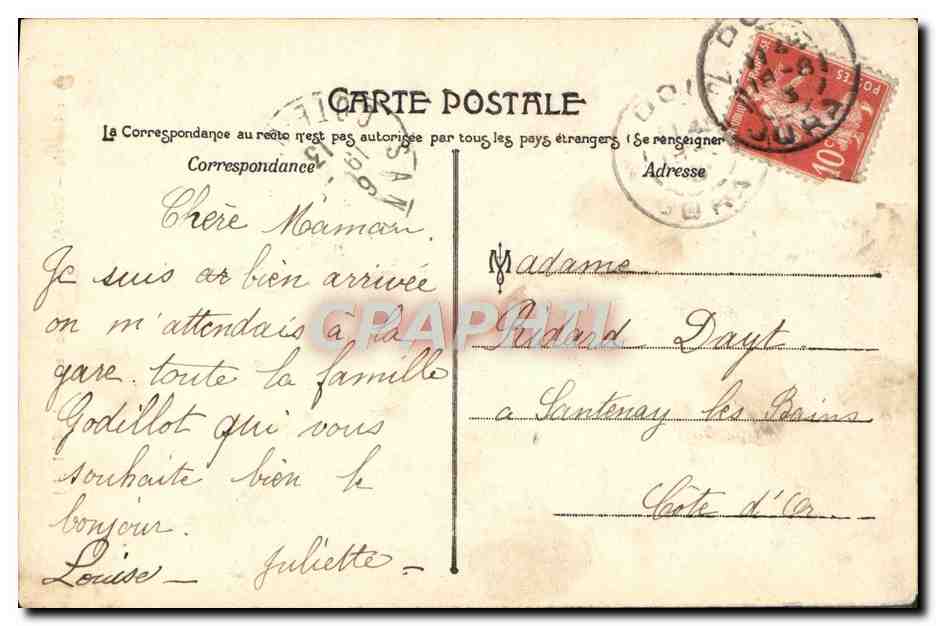 CARTE POSTALE
La Correspondance au recto n'est pas autorisée par tous les pays étrangers (Se renseigner
Correspondance
Adresse
Chère Maman.
Je suis bien arrivée
on m'attendais à la
gare. toute la famille
Godillot qui vous
souhaite bien le
bonjour.
Louise — Juliette —
Madame
Ridard Dayt
a Santenay les Bains
Côte d'Or
CPAPHIL
POSTES
10c
JURA
JURA